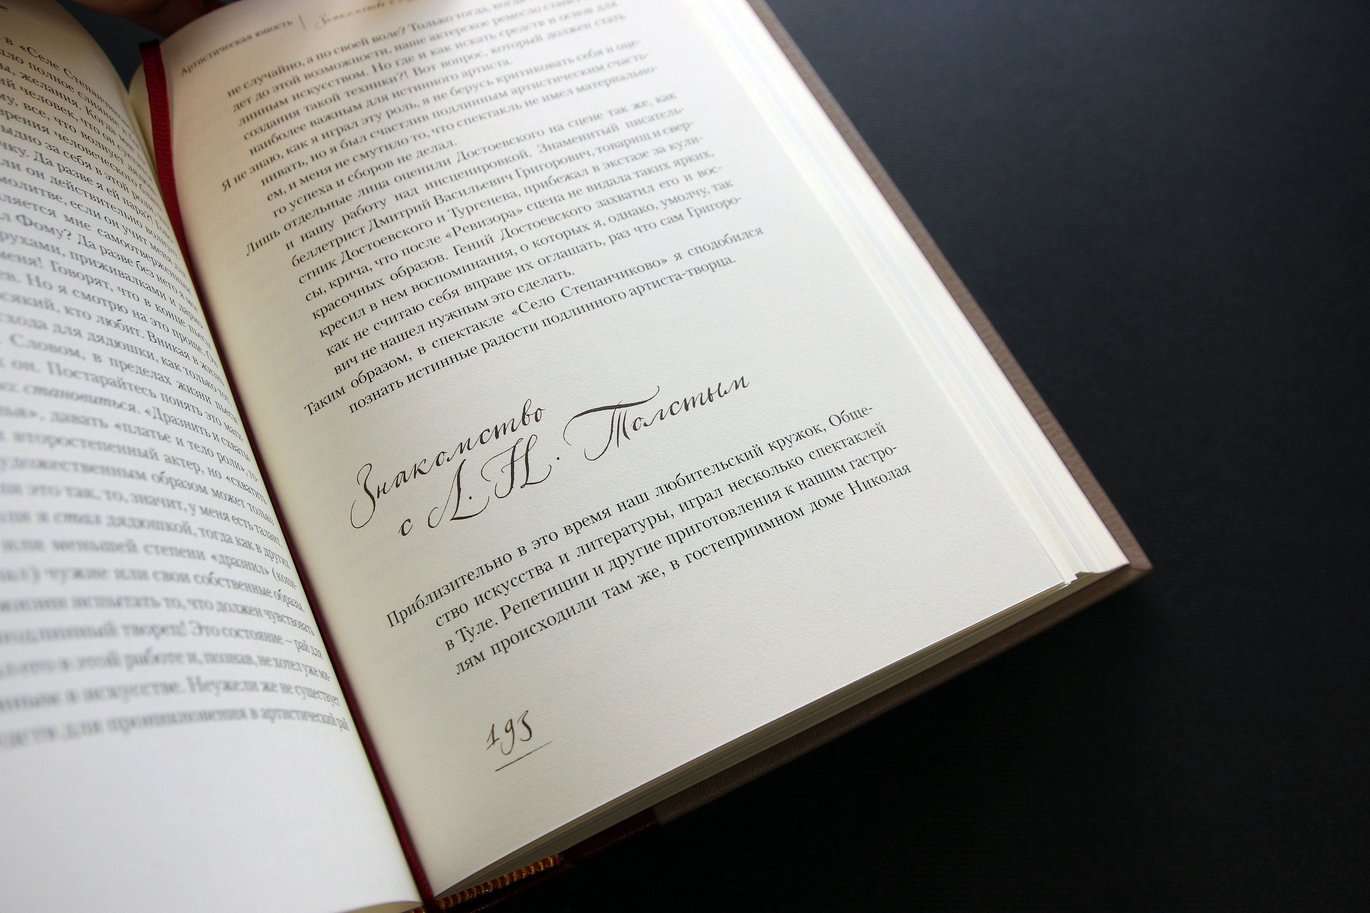 в «Селе Степан
ало полное слияние
ы, желания. Когда
ий человек, что мои
му, все, что волнует дя
зрения человеческого
ыдно за себя в этой роли
чку. Да разве я ей пара?
ли он действительно
молитве, если он учит меня
вляется мне самоотвержен
ал Фому? Да разве без него я мог
рухами, приживалками и
меня! Говорят, что в конце пьесы
ев. Но я смотрю на это проще. Он
всякий, кто любит. Вникая в жизнь
схода для дядюшки, как только то
Словом, в пределах жизни пьесы
он. Постарайтесь понять это маги
становиться. «Дразнить и схваты
давать «платье и тело роли», то
второстепенный актер, но «схватить
художественным образом может только
ли это так, то, значит, у меня есть талант,
я стал дядюшкой, тогда как в других
или меньшей степени «дразнил» (копи-
чужие или свои собственные образы.
испытать то, что должен чувствовать
подлинный творец! Это состояние – рай для
этой работе и, познав, не хотел уже ми-
в искусстве. Неужели же не существует
для проникновения в артистический рай
Артистическая юность | Знакомство с
не случайно, а по своей воле? Только тогда, когда
дет до этой возможности, наше актерское ремесло станет
линным искусством. Но где и как искать средств и основ для
создания такой техники?! Вот вопрос, который должен стать
наиболее важным для истинного артиста.
Я не знаю, как я играл эту роль, я не берусь критиковать себя и оце-
нивать, но я был счастлив подлинным артистическим счасть-
ем, и меня не смутило то, что спектакль не имел материально-
го успеха и сборов не делал.
Лишь отдельные лица оценили Достоевского на сцене так же, как
и нашу работу над инсценировкой. Знаменитый писатель-
беллетрист Дмитрий Васильевич Григорович, товарищ и свер-
стник Достоевского и Тургенева, прибежал в экстазе за кули-
сы, крича, что после «Ревизора» сцена не видала таких ярких,
красочных образов. Гений Достоевского захватил его и вос-
кресил в нем воспоминания, о которых я, однако, умолчу, так
как не считаю себя вправе их оглашать, раз что сам Григоро-
вич не нашел нужным это сделать.
Таким образом, в спектакле «Село Степанчиково» я сподобился
познать истинные радости подлинного артиста-творца.
Знакомство
с Л. Н. Толстым
Приблизительно в это время наш любительский кружок, Обще-
ство искусства и литературы, играл несколько спектаклей
в Туле. Репетиции и другие приготовления к нашим гастро-
лям происходили там же, в гостеприимном доме Николая
193